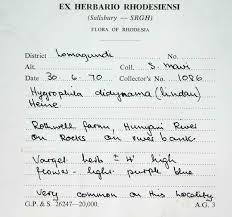 EX HERBARIO RHODESIENSI
(Salisbury — SRGH)
FLORA OF RHODESIA
District Lomagundi No.
Alt. Coll. S. Mavi
Date 30 - 6 - 70 Collector's No. 1086
Hygrophila didynama (Lindau)
Heine
Rothwell farm, Hunyani River
on Rocks on river bank.
herb ± 4' high
flower - light purple blue
Very common on this locality
G.P. & S. 26247—20,000. A.G. 3